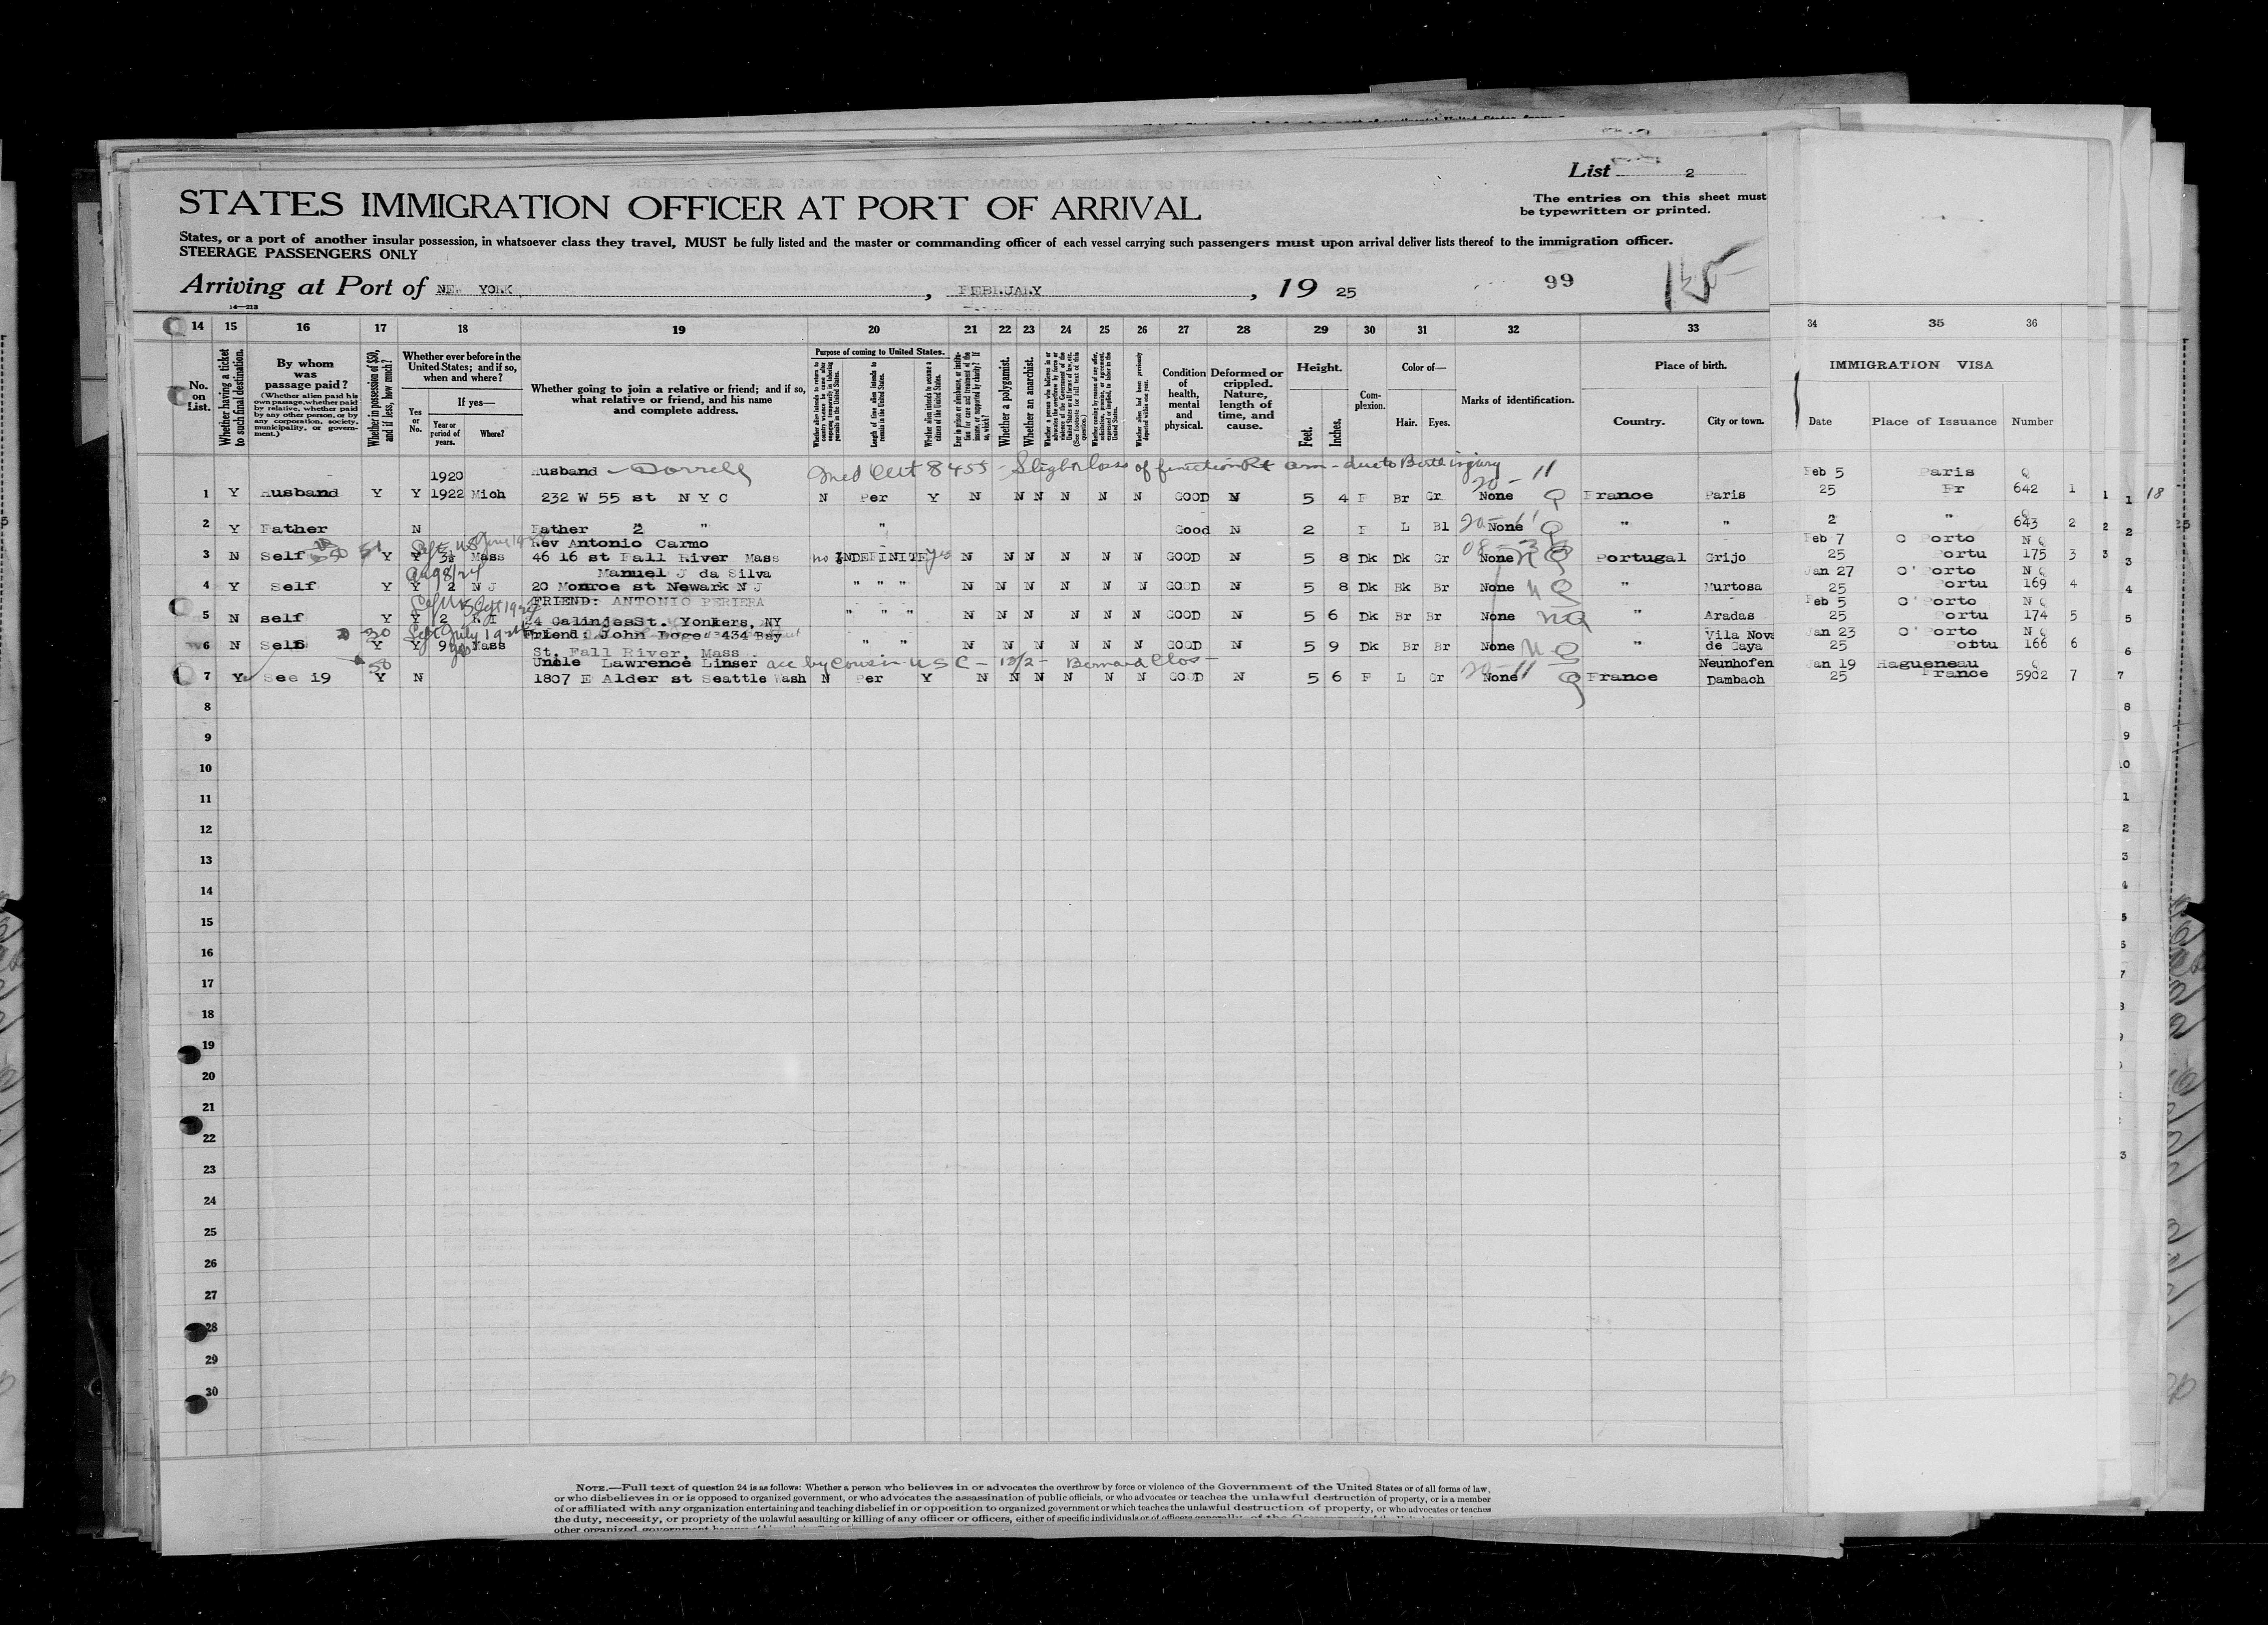 List 2
The entries on this sheet must
be typewritten or printed.
STATES IMMIGRATION OFFICER AT PORT OF ARRIVAL
States, or a port of another insular possession, in whatsoever class they travel, MUST be fully listed and the master or commanding officer of each vessel carrying such passengers must upon arrival deliver lists thereof to the immigration officer.
STEERAGE PASSENGERS ONLY
Arriving at Port of NEW YORK, FEBRUARY, 19 25
99
14—213
14 15 16 17 18 19 20 21 22 23 24 25 26 27 28 29 30 31 32 33 34 35 36
No. on List.
Whether having a ticket to such final destination.
By whom was passage paid?
(Whether alien paid his own passage, whether paid by relative, whether paid by any other person, or by any corporation, society, municipality, or government.)
Whether in possession of $50, and if less, how much?
Whether ever before in the United States; and if so, when and where?
Yes or No.
If yes—
Year or period of years.
Where?
Whether going to join a relative or friend; and if so, what relative or friend, and his name and complete address.
Purpose of coming to United States.
Length of time alien intends to remain in the United States.
Whether alien intends to become a citizen of the United States.
Whether a polygamist.
Whether an anarchist.
Condition of health, mental and physical.
Deformed or crippled. Nature, length of time, and cause.
Height.
Feet.
Inches.
Complexion.
Color of—
Hair.
Eyes.
Marks of identification.
Place of birth.
Country.
City or town.
IMMIGRATION VISA
Date
Place of Issuance
Number
1920 Husband - Dorrell Med Cert 8455 - Slight loss of function Rt arm - due to Birth injury 20-11 Feb 5 Paris Q
1 Y Husband Y Y 1922 Mich 232 W 55 st N Y C N Per Y N N N N N N GOOD N 5 4 F Br Gr None Q France Paris 25 Fr 642 1
2 Y Father N Father 2 " " Good N 2 F L Bl None Q " " 2 " Q 643 2
Rev Antonio Carmo Feb 7 O Porto N Q
3 N Self Y Y 3½ Mass 46 16 st Fall River Mass no INDEFINITE yes N N N N N N GOOD N 5 8 Dk Dk Gr None N Q Portugal Grijo 25 Portu 175 3
Manuel J da Silva Jan 27 O'Porto N Q
4 Y Self Y Y 2 N J 20 Monroe st Newark N J " " " N N N N N N GOOD N 5 8 Dk Bk Br None N Q " Murtosa 25 Portu 169 4
FRIEND: ANTONIO PERIERA Feb 5 O'Porto N Q
5 N self Y Y 2 R I 24 CalinjosSt. Yonkers, NY " " " N N N N N N GOOD N 5 6 Dk Br Br None N Q " Aradas 25 Portu 174 5
Friend: John Doge 434 Bay Vila Nova Jan 23 O'Porto N Q
6 N Self Y Y 9½ Mass St. Fall River, Mass " " N N N N N N GOOD N 5 9 Dk Br Br None N Q " de Gaya 25 Portu 166 6
50 Uncle Lawrence Linser acc by Cousin USC - Bernard Clos - 20-11 Neunhofen Jan 19 Hagueneau Q
7 Y See 19 Y N 1807 E Alder st Seattle Wash N Per Y N N N N N N GOOD N 5 6 F L Gr None Q France Dambach 25 France 5902 7
8
9
10
11
12
13
14
15
16
17
18
19
20
21
22
23
24
25
26
27
28
29
30
NOTE.—Full text of question 24 is as follows: Whether a person who believes in or advocates the overthrow by force or violence of the Government of the United States or of all forms of law,
or who disbelieves in or is opposed to organized government, or who advocates the assassination of public officials, or who advocates or teaches the unlawful destruction of property, or is a member
of or affiliated with any organization entertaining and teaching disbelief in or opposition to organized government or which teaches the unlawful destruction of property, or who advocates or teaches
the duty, necessity, or propriety of the unlawful assaulting or killing of any officer or officers, either of specific individuals or of officers generally, of the Government
other organized government because of